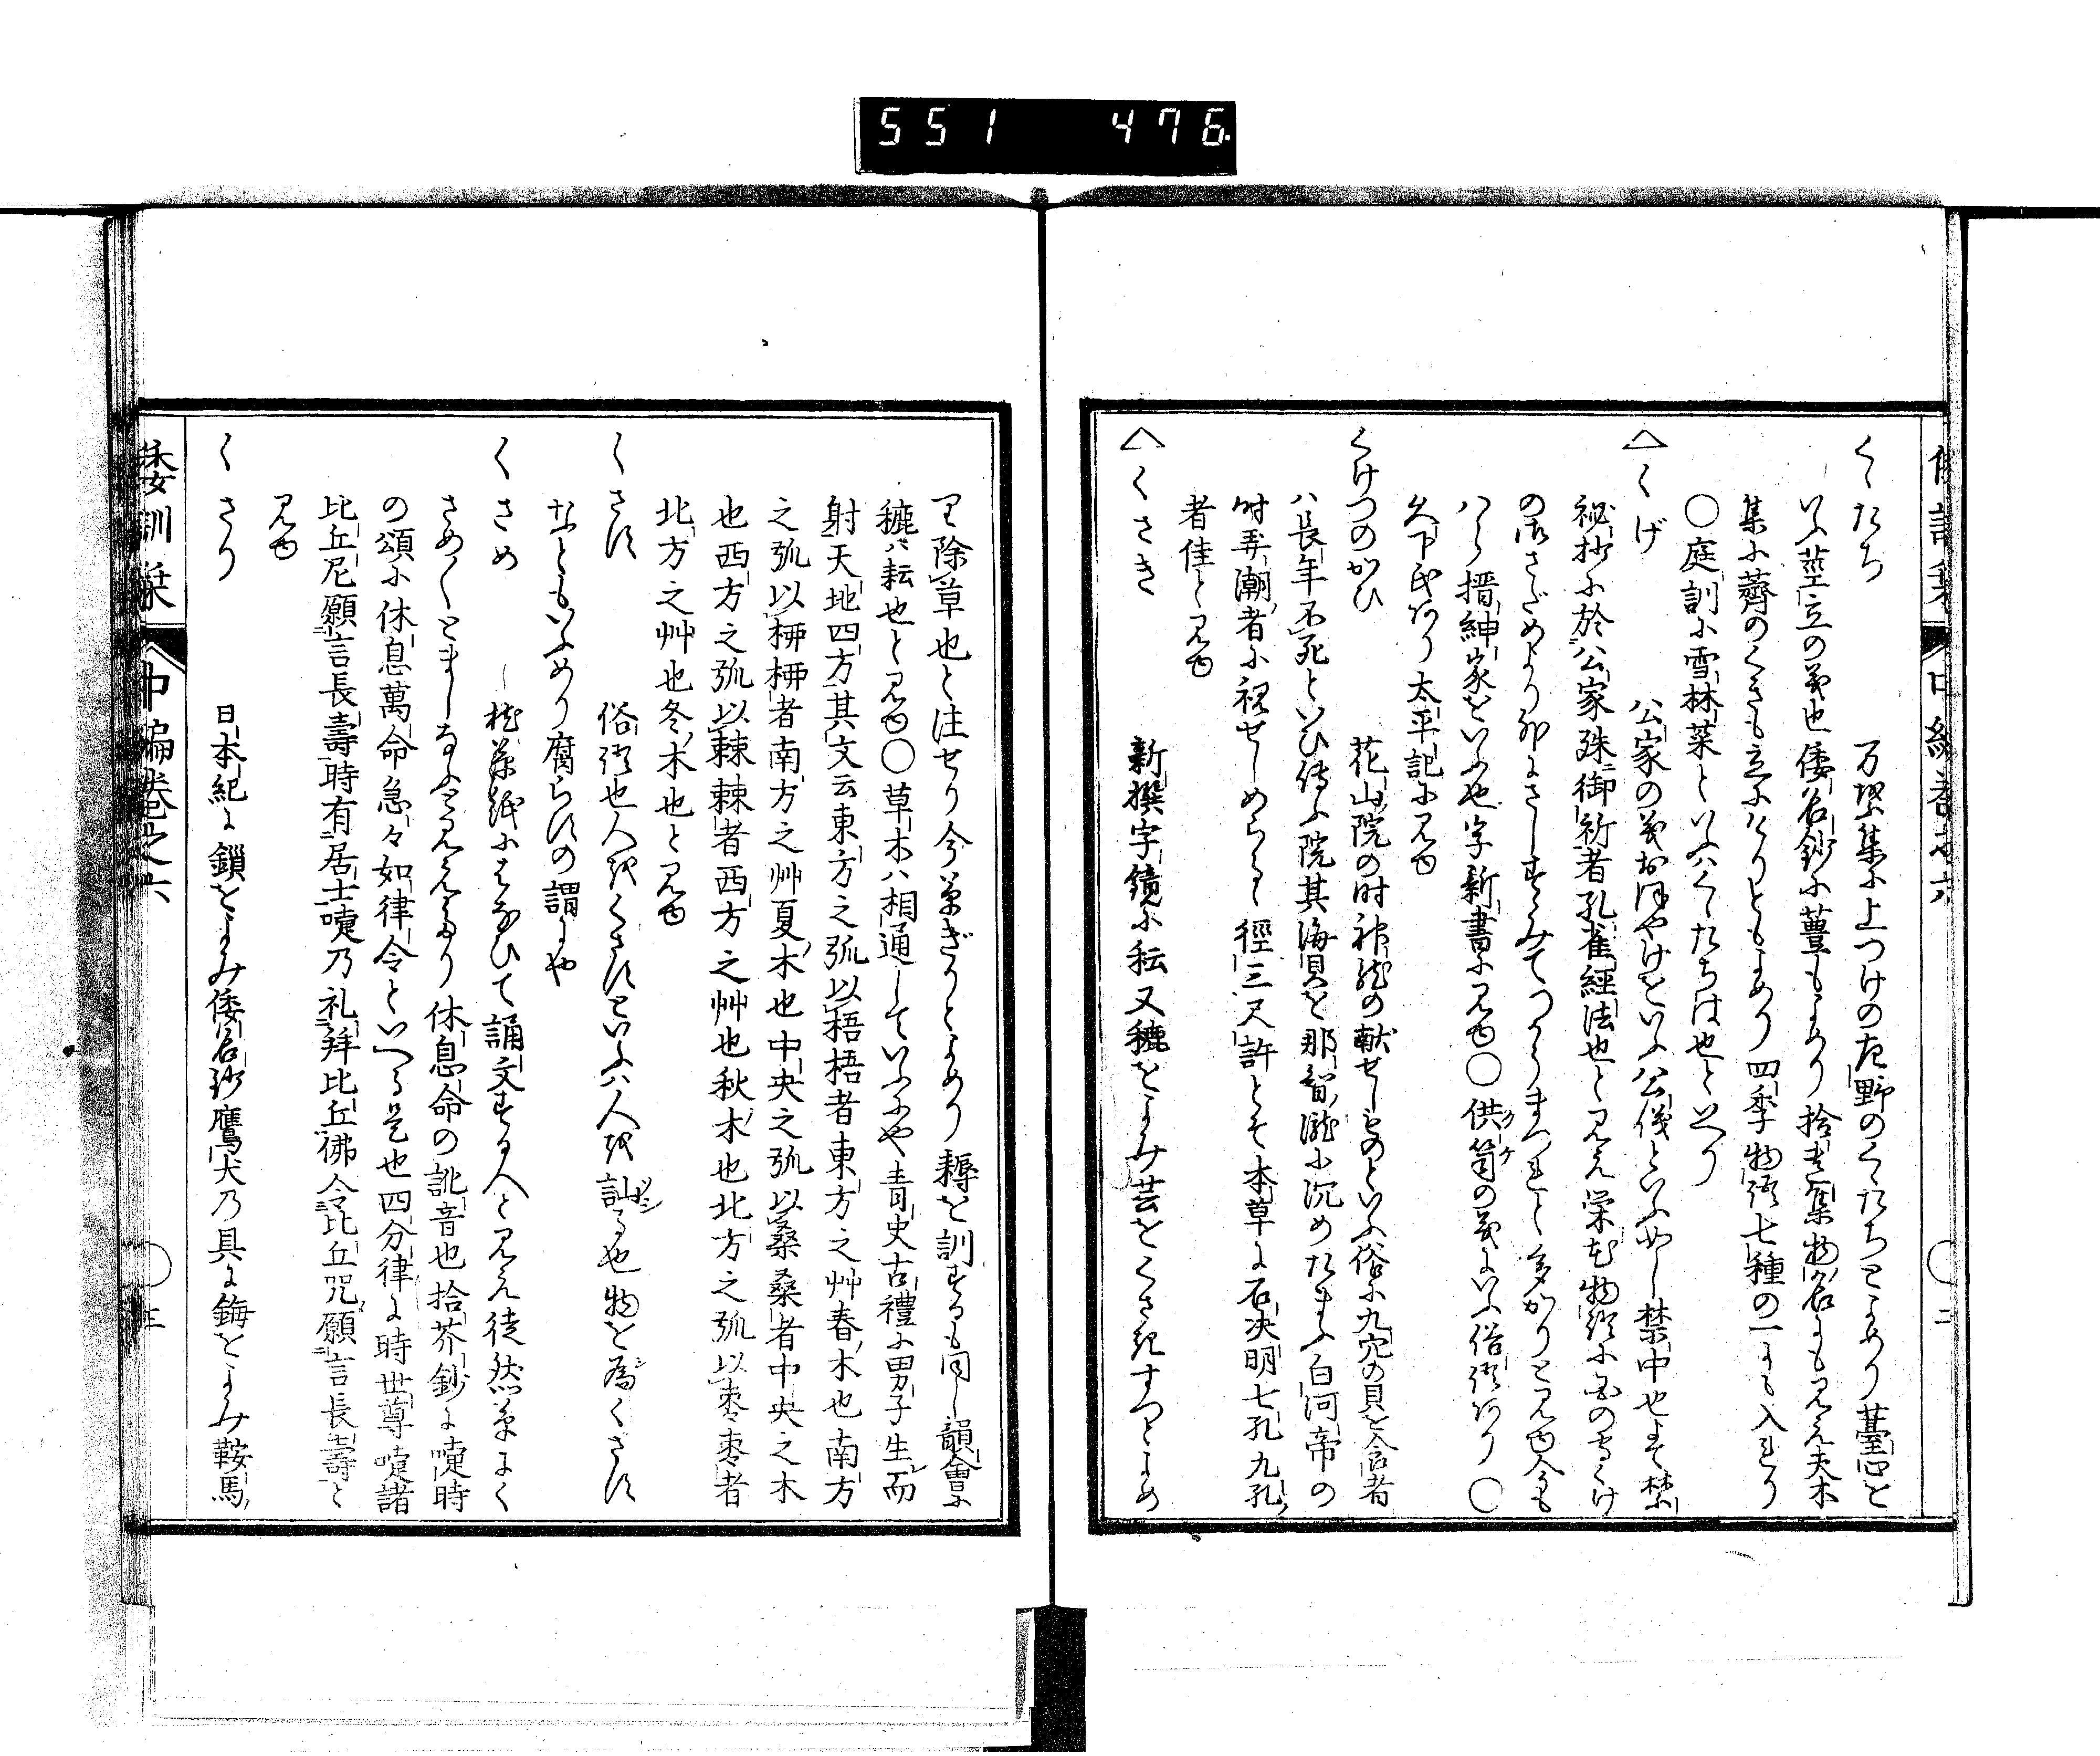 551 476
くゝたち 万葉集に上つけのさ野のくゝたちとよめり薹心を
いふ茎立の義也倭名鈔に蘴もよめり拾遺集物名にも見え夫木
集に薺のくきも立にけりともよめり四季物語七種の一にも入れり
○庭訓に雪林菜といふハくゝたちは也といへり
へくげ 公家の義おほやけをいふ公儀といふめし禁中也とそ禁
祕抄に於公家殊御祈者孔雀經法也と見え栄花物語に
ハら搢紳家をいふ也字新書に見ゆ○供笥の義にいふ俗語あり○
久下氏あり太平記に見ゆ
くけつのかひ 花山院の時神龍の献せしものといふ俗に九穴の貝を含者
ハ長年不死といひ傳ふ院其海貝を那智瀧に沉めたまふ白河帝の
時弄潮者に視せしめらる徑三尺許とそ本草に石决明七孔九孔
者佳と見ゆ
へくさき 新撰字鏡に耘又穮をよみ芸をくさきすつとよめ
り除草也と注せり今草ぎりとよめり耨を訓するも同し韻會に
穮ハ耘也と見ゆ○草木ハ相通していふにや青史古禮に男子生而
射天地四方其文云東方之弧以梧梧者東方之艸春木也南方
之弧以桺桺者南方之艸夏木也中央之弧以桑桑者中央之木
也西方之弧以棘棘者西方之艸也秋木也北方之弧以棗棗者
北方之艸也冬木也と見ゆ
くさす 俗語也人をくさすといふハ人を訕る也物を為くさす
なともいふめり腐らすの謂にや
くさめ 枕草紙にはなひて誦文する人と見え徒然草にく
さめくとましなふと見えたり休息命の訛音也拾芥鈔に嚏時
の頌に休息萬命急々如律令といへる是也四分律に時世尊嚏諸
比丘尼願言長壽時有居士嚏乃礼拜比丘佛令比丘咒願言長壽と
見ゆ
くさり 日本紀に鎖をよみ倭名鈔鷹犬乃具に鋂をよみ鞍馬
倭訓栞 中編巻之六 三